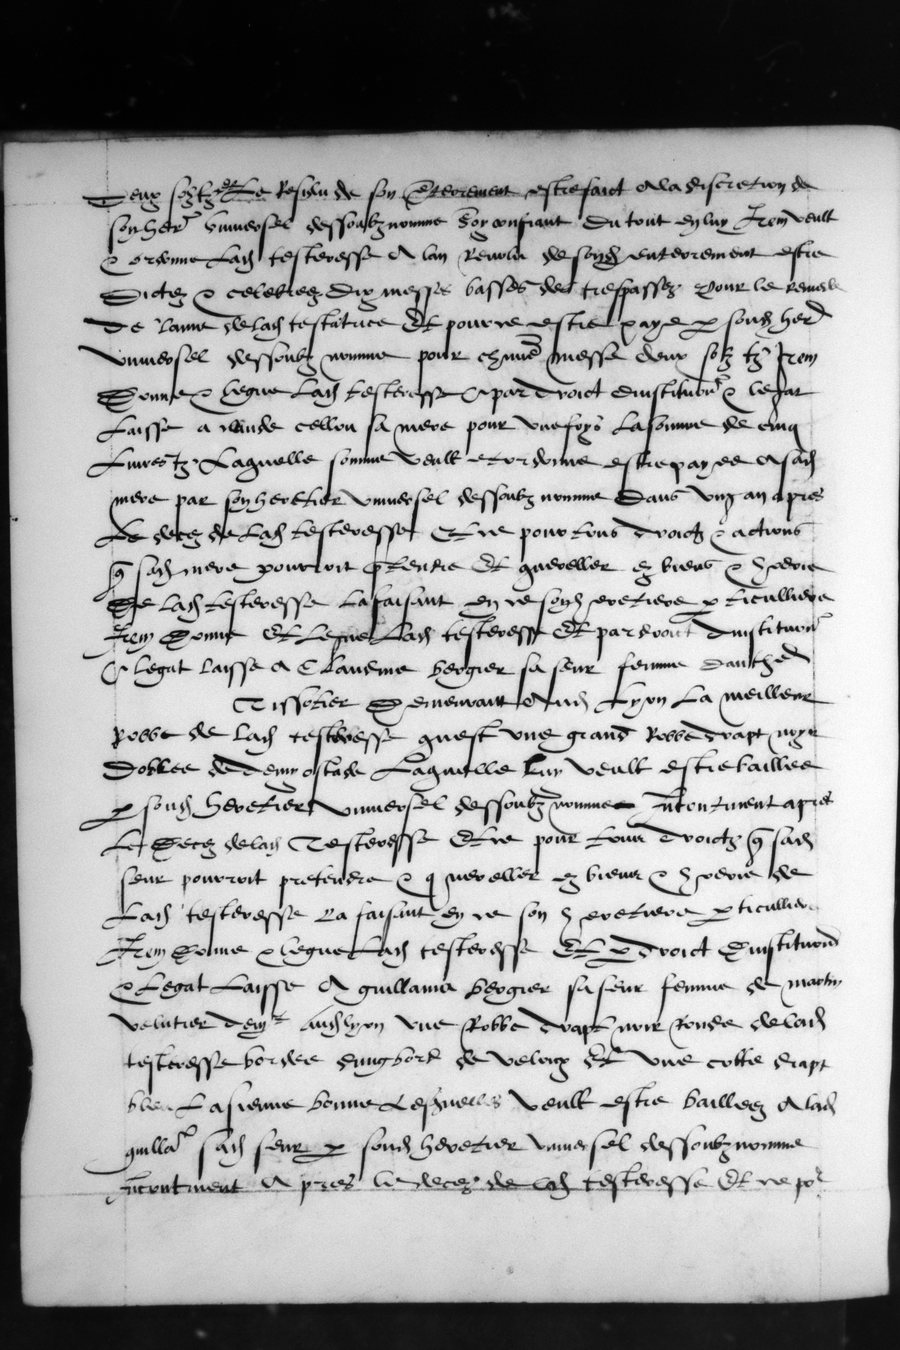 Deux solz tz et le Residu de son Enterement estre faict A la discretion de
son her. universel dessoubz nomme soy confiant du tout en luy Item veult
& ordonne Lad. testeresse A lan Revolu de sond. enterement estre
Dictes & celebrees dix messes basses des trespassez Pour le Remede
De lame de lad. testatrice Et pour ce estre paye p sond. her.
universel dessoubz nomme pour chune messe deux solz tz Item
Donne & legue Lad. testeresse & par droict dinstitution & legat
Laisse a sa mere pour unefoys La somme de cinq
Livres tz Laquelle somme veult et ordonne estre payee A sad.
mere par son heretier universel dessoubz nomme Dans ung an apres
Le decez de Lad. testeresse Et ce pour tous droictz & actions
q sad. mere pourroit ptendre Et quereller es biens &
De Lad. testeresse La faisant en ce son heretiere p ticulliere
Item Donne Et Legue Lad. testeresse Et par droict dinstitution
& legat laisse A Claudine bergier sa seur femme
Tissotier Demeurant Aud. Lyon La meilleur
Robbe de lad. testeresse quest une grand Robbe drapt noyr
doblee de demy ostade Laquelle luy veult estre baillee
p sond. heretier universel dessoubz nomme Incontinent apres
Le Decez de lad. Testeresse Et ce pour tous droictz q sad.
seur pourroit pretendre & quereller es biens & de
Lad. testeresse La faisant en ce son heretiere p ticulliere
Item Donne & legue Lad. testeresse Et p droict Dinstitution
& Legat Laisse A guillauma bergier sa seur femme de martin
velutier aud. lyon une Robbe drapt noir Ronde de lad.
testeresse bordee dung bord de veloux Et une cotte drapt
bleu La sienne bonne Lesquelles veult estre baillees A lad.
guilla. sad. seur p sond. heretier universel dessoubz nomme
Incontinent A pres le decez de lad. testeresse Et ce por